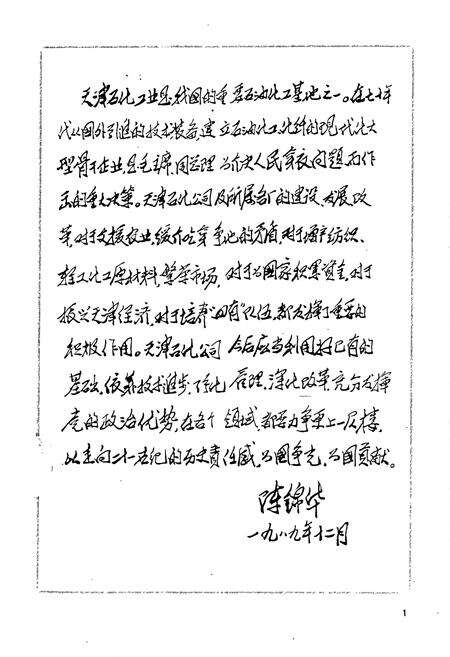 天津石化工业是我国的重要石油化工基地之一。在七十年
代从国外引进的技术装备,建立石油化工化纤的现代化大
型骨干企业,是毛主席、周总理为解决人民穿衣问题而作
出的重大决策。天津石化公司及所属各厂的建设、发展、改
革,对于支援农业,缓和吃穿争地的矛盾,对于增产纺织、
轻工化工原材料,繁荣市场,对于为国家积累资金,对于
振兴天津经济,对于培养“四有”队伍,都发挥了重要的
积极作用。天津石化公司今后应当利用好已有的
基础,依靠技术进步,优化管理,深化改革,充分发挥
党的政治优势,在各个领域都努力争取更上一层楼,
以走向二十一世纪的历史责任感,为国争光,为国贡献。
陈锦华
一九八九年十二月
1